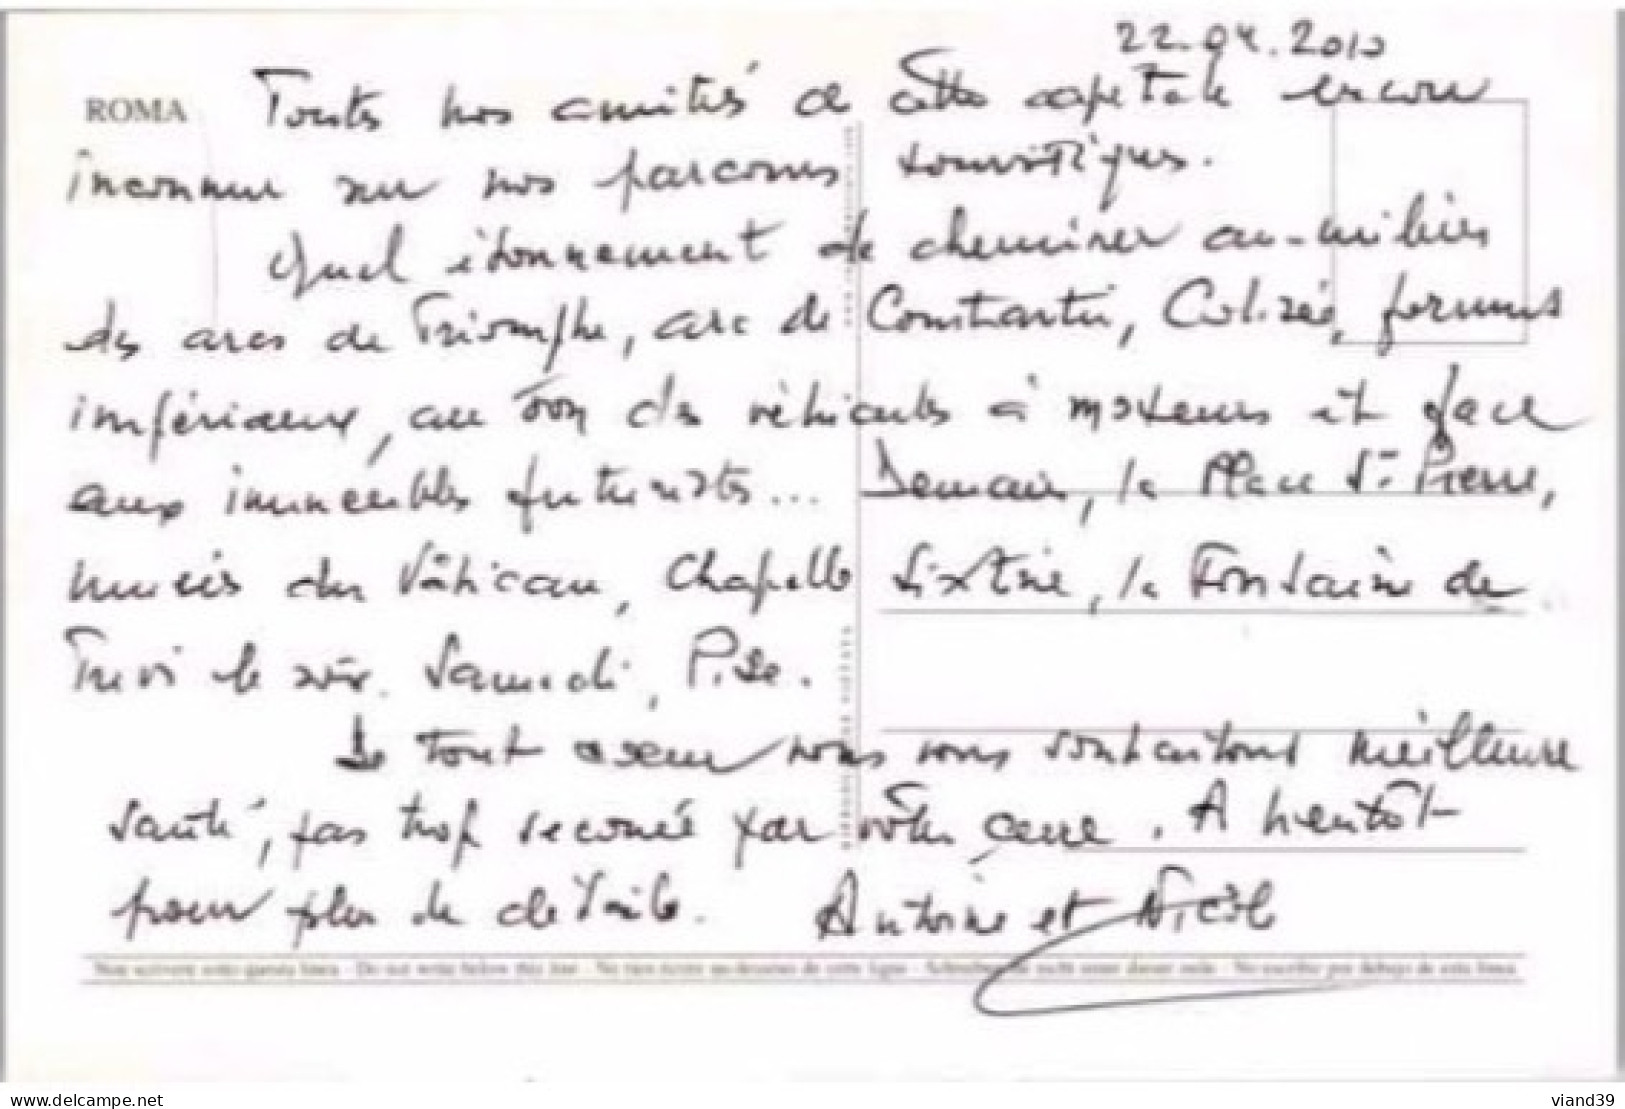 22.04.2010
ROMA
Toutes nos amitiés de cette capitale encore
inconnue sur nos parcours touristiques.
Quel étonnement de cheminer au-milieu
des arcs de Triomphe, arc de Constantin, Colisée, forums
impériaux, au son des véhicules à moteurs et face
aux immeubles futuristes... Demain, la Place St Pierre,
musées du Vatican, Chapelle Sixtine, la Fontaine de
Trevi le soir. Samedi, Pise.
De tout coeur nous vous souhaitons meilleure
santé, pas trop secouée par votre
. A bientôt
pour plus de détails. Antoine et Nicole
Non scrivere sotto questa linea - Do not write below this line - Ne rien écrire au-dessous de cette ligne -
delcampe.net
viand39